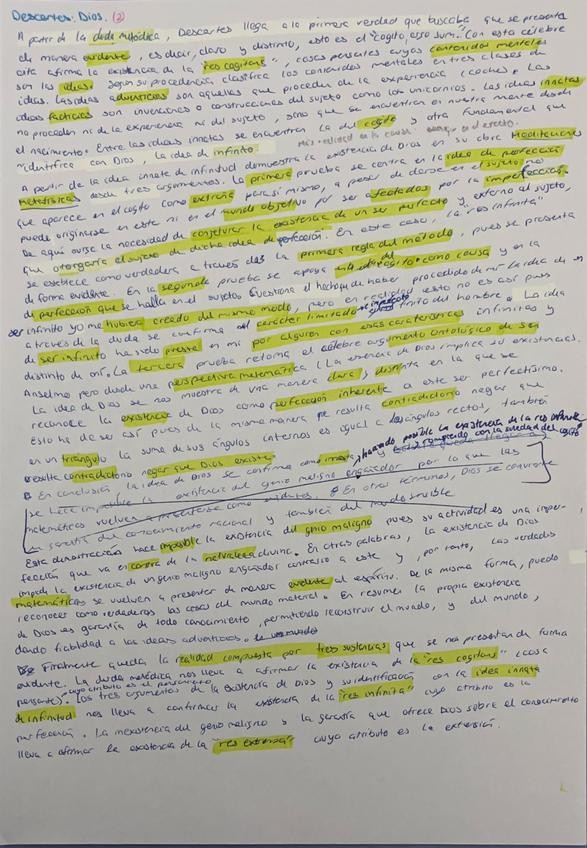 Descartes: Dios. (2)
A partir de la duda metódica, Descartes llega a la primera verdad que buscaba que se presenta
de manera evidente, es decir, claro y distinto, esto es el "cogito, ergo sum". Con esta célebre
cita afirma la existencia de la "res cogitans", cosas pensantes cuyos contenidos mentales
son las ideas. Según su procedencia clasifica los contenidos mentales en tres clases de
ideas. Las ideas adventicias son aquellas que proceden de la experiencia (coche). Las
ideas facticias son invenciones o construcciones del sujeto como los unicornios. Las ideas innatas
no proceden ni de la experiencia ni del sujeto, sino que se encuentran en nuestra mente desde
el nacimiento. Entre las ideas innatas se encuentran la del cogito y otra fundamental que
identifica con Dios, la idea de infinito.
A partir de la idea innata de infinitud demuestra la existencia de Dios en su obra Meditaciones
Metafísicas desde tres argumentos. La primera prueba se centra en la idea de perfección
que aparece en el cogito como extraña para sí mismo, a pesar de darse en el sujeto, no
puede originarse en este ni en el mundo objetivo por ser afectados por la imperfección.
De aquí surge la necesidad de conjeturar la existencia de un ser perfecto y externo al sujeto,
que otorgaría al sujeto de dicha idea de perfección. En este caso, la "res infinita"
se establece como verdadera a través de la primera regla del método, pues se presenta
de forma evidente. En la segunda prueba se apoya en la causa y en la
de perfección que se halla en el sujeto. Cuestiona el hecho de haber procedido de mí. La idea de un
ser infinito yo me hubiera creado del mismo modo, pero en realidad esto no es así pues
a través de la duda se confirma el carácter limitado imperfecto finito del hombre. La idea
de ser infinito ha sido puesta en mí por alguien con esas características infinitas y
distinto de mí. La tercera prueba retoma el célebre argumento ontológico de San
Anselmo pero desde una perspectiva matemática (La esencia de Dios implica su existencia).
La idea de Dios se nos muestra de una manera clara, distinta en la que se
reconoce la existencia de Dios como perfección inherente a este ser perfectísimo.
Esto ha de ser así pues de la misma manera que resulta contradictorio negar que
en un triángulo la suma de sus ángulos internos es igual a dos ángulos rectos, también
resulta contradictorio negar que Dios existe.
En conclusión la idea de Dios se confirma como innata, haciendo posible la existencia de la res infinita
se hace imposible la existencia del genio maligno engañador por lo que las
matemáticas vuelven a presentarse como evidentes. En otros términos, Dios se convierte
en garantía del conocimiento racional y también del mundo sensible
Esta demostración hace imposible la existencia del genio maligno pues su actividad es una imper-
fección que va en contra de la naturaleza divina. En otras palabras, la existencia de Dios
impide la existencia de un genio maligno engañador contrario a este y, por tanto, las verdades
matemáticas se vuelven a presentar de manera evidente al espíritu. De la misma forma, puedo
reconocer como verdaderas las cosas del mundo material. En resumen la propia existencia
de Dios es garantía de todo conocimiento, permitiendo reconstruir el mundo, y del mundo,
dando fiabilidad a las ideas adventicias.
Finalmente queda la realidad compuesta por tres sustancias que se nos presentan de forma
evidente. La duda metódica nos lleva a afirmar la existencia de la "res cogitans" (cosa
pensante) cuyo atributo es el pensamiento. Los tres argumentos de la existencia de Dios y su identificación con la idea innata
de infinitud nos lleva a confirmar la existencia de la "res infinita" cuyo atributo es la
perfección. La inexistencia del genio maligno y la garantía que ofrece Dios sobre el conocimiento
lleva a afirmar la existencia de la "res extensa" cuyo atributo es la extensión.